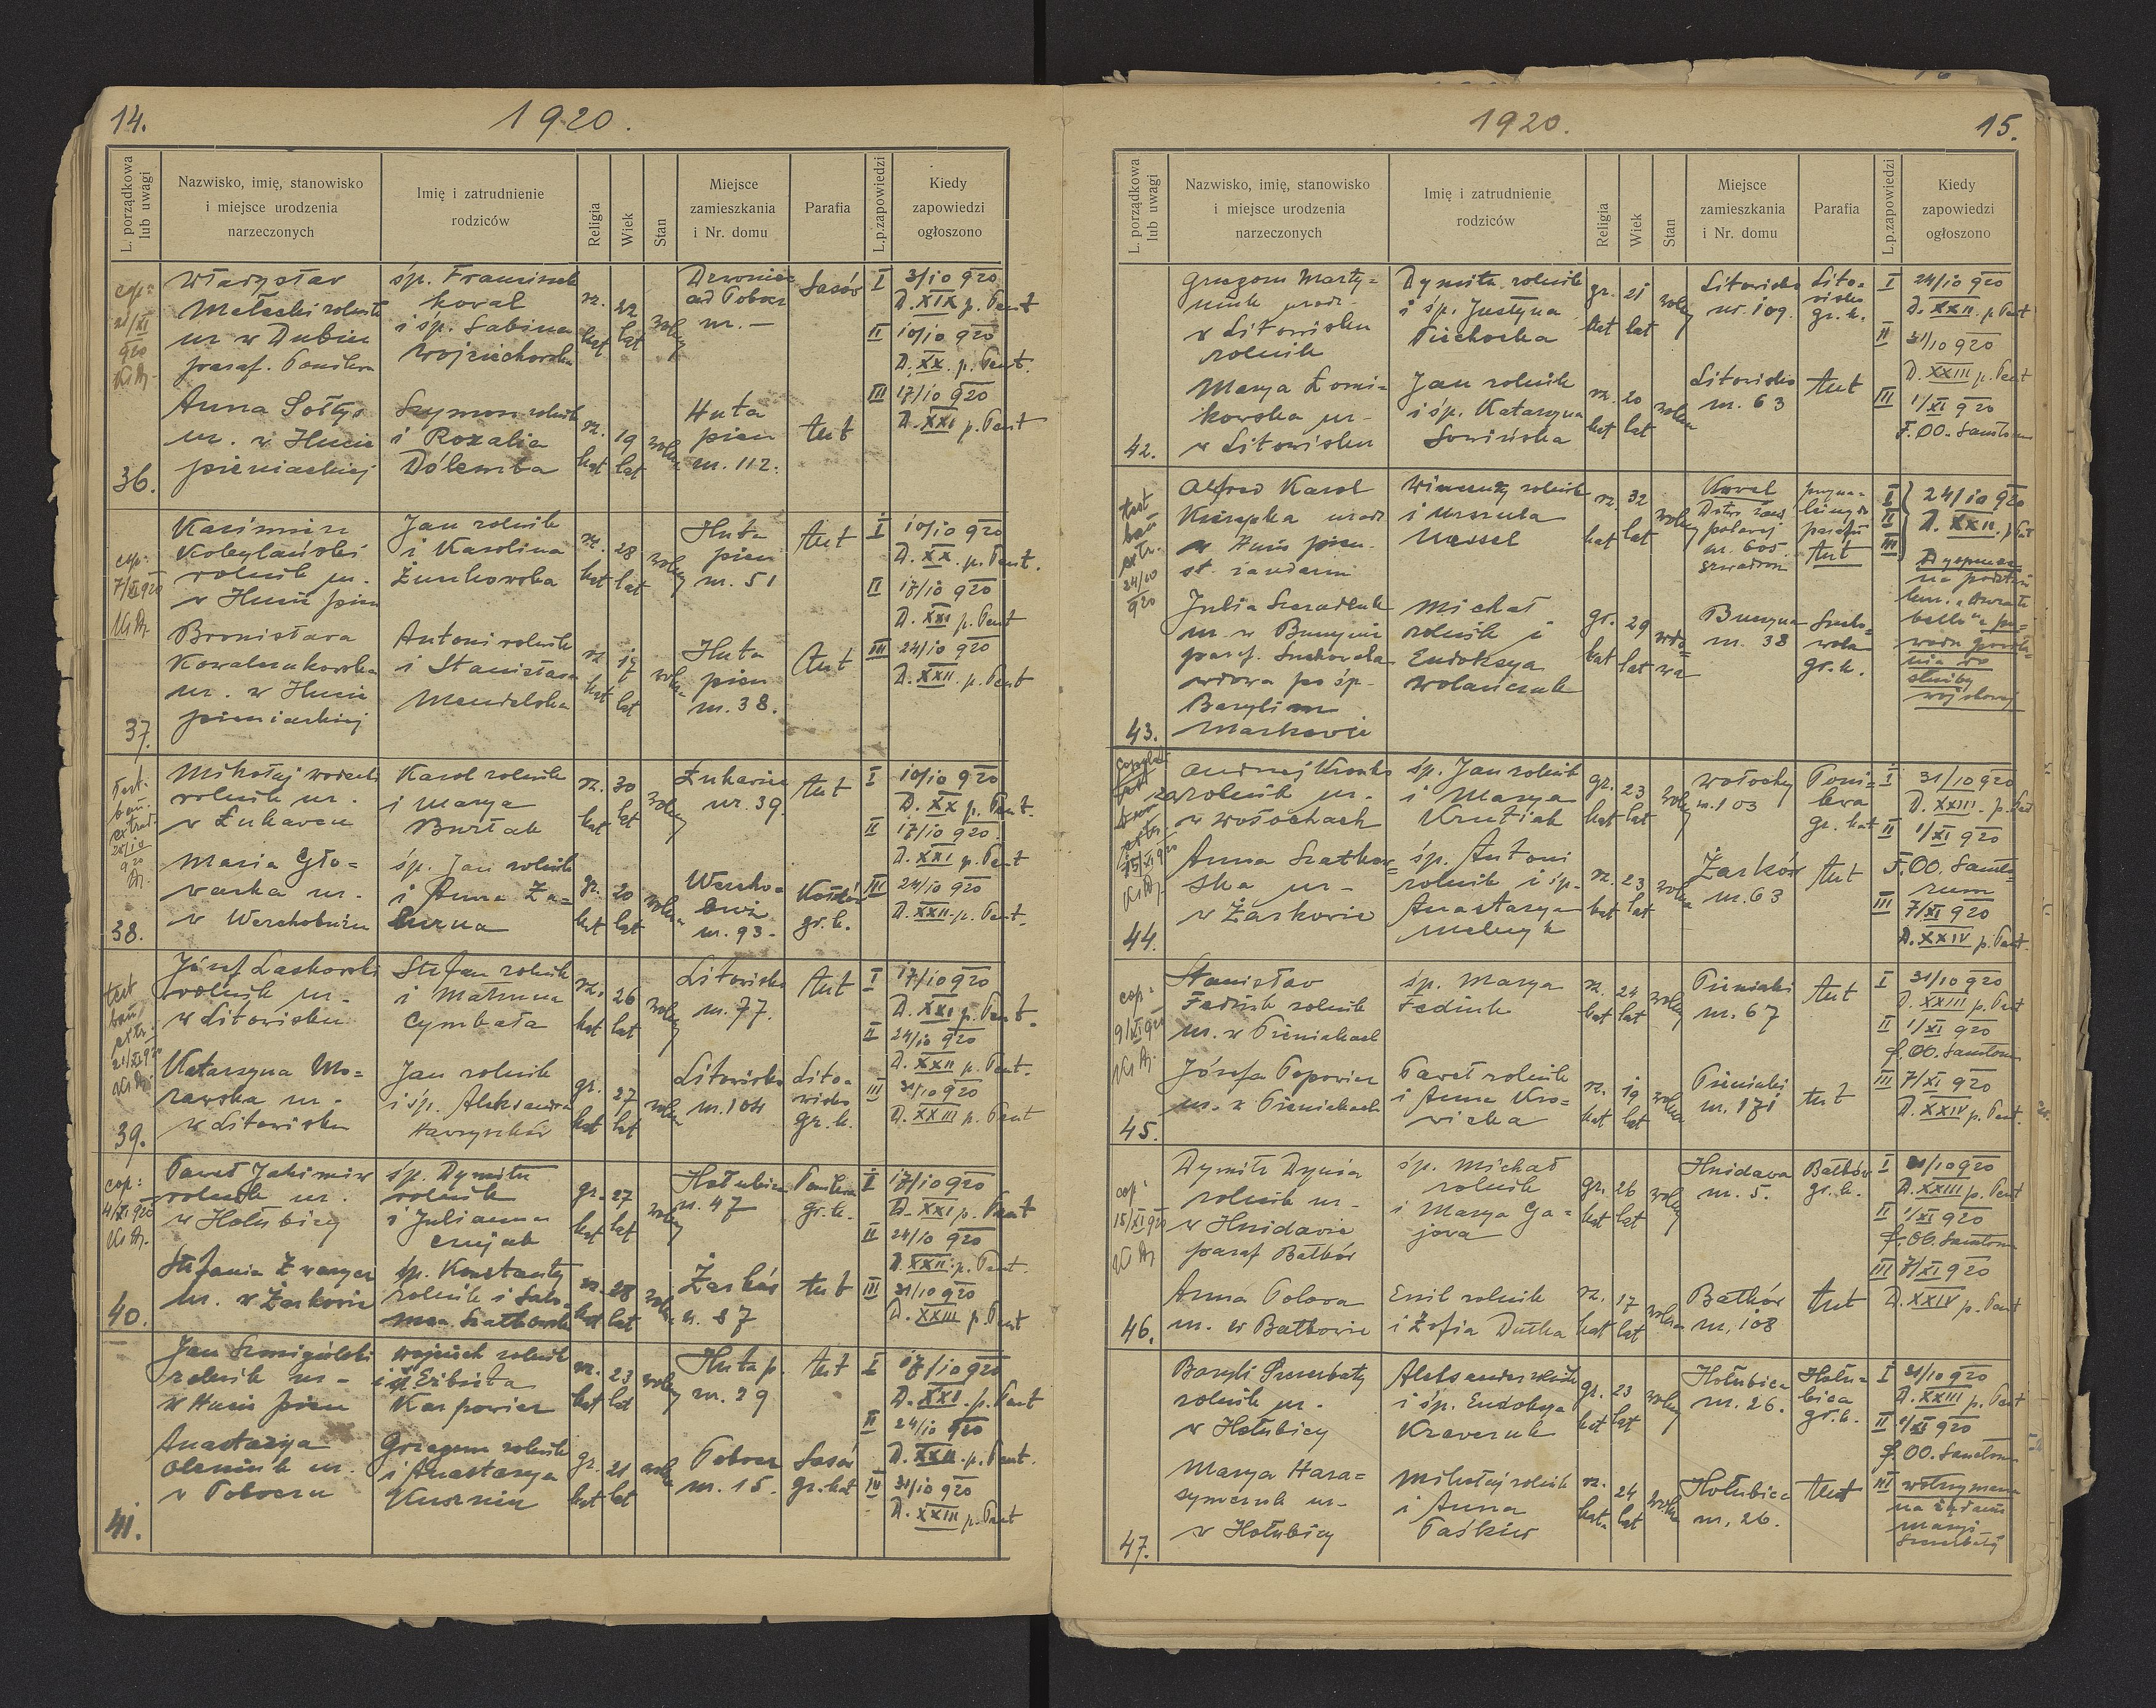 14.
1920.
L. porządkowa lub uwagi
Nazwisko, imię, stanowisko
i miejsce urodzenia
narzeczonych
Imię i zatrudnienie
rodziców
Religia
Wiek
Stan
Miejsce
zamieszkania
i Nr. domu
Parafia
L.p.zapowiedzi
Kiedy
zapowiedzi
ogłoszono
36.
Władysław
rolnik
ur w Dubiu
paraf. Ponikwa
śp. Franciszek
Kowal
i śp. Sabina
Wojciechowska
rz.
kat
22
lat
wolny
ad Pobocz
nr. —
Sasów
I 3/10 920
D. XIX p. Pent
II 10/10 920
D. XX. p. Pent.
III 17/10 920
D. XXI p. Pent
Anna Sołtys
ur. w Hucie
pieniackiej
Szymon rolnik
i Rozalia
rz.
kat
19
lat
wolna
Huta
pien
nr. 112.
tut
37.
cop:
7/XI 920
Kazimierz
Kobylański
rolnik ur.
w Hucie pien
Jan rolnik
i Karolina
Żurkowska
rz.
kat
28
lat
wolny
Huta
pien
nr. 51
tut
I 10/10 920
D. XX. p. Pent.
II 17/10 920
D. XXI p. Pent
III 24/10 920
D. XXII. p. Pent
Bronisława
ur. w Hucie
pieniackiej
Antoni rolnik
i Stanisława
rz
kat
19
lat
wolna
Huta
pien
nr. 38.
tut
38.
Mikołaj
rolnik ur.
w Łukawcu
Karol rolnik
i Marya
Burłak
rz.
kat
30
lat
wolny
nr. 39.
tut
I 10/10 920
D. XX p. Pent.
II 17/10 920.
D. XXI p. Pent
III 24/10 920
D. XXII. p. Pent.
Maria Gło=
wacka ur.
w Werchobużu
śp. Jan rolnik
i Anna
gr.
kat
20
lat
wolna
nr. 93.
gr. k.
39.
Józef Laskowski
rolnik ur.
w Litowisku
Stefan rolnik
i Matruna
Cymbała
rz.
kat
26
lat
wolny
Litowisko
nr. 77.
tut
I 17/10 920
D. XXI p. Pent.
II 24/10 920
D. XXII p. Pent.
III 31/10 920
D. XXIII p. Pent
Katarzyna Mo=
rawska ur.
w Litowisku
Jan rolnik
i śp. Aleksandra
gr.
kat
27
lat
wolna
Litowisko
nr. 104
Lito=
wisko
gr. k.
40.
cop:
4/XI 920
Paweł Jakimiw
rolnik ur.
w Hołubicy
śp. Dymitr
rolnik
i Julianna
gr.
kat
27
lat
wolny
Hołubica
nr. 47
Ponikwa
gr. k.
I 17/10 920
D. XXI p. Pent
II 24/10 920
D. XXII. p. Pent.
III 31/10 920
D. XXIII p. Pent
Stefania
ur. w Żarkowie
śp. Konstanty
rolnik i
Szatkowska
rz.
kat
28
lat
wolna
Żarków
n. 87
tut
41.
Jan Szmigielski
rolnik ur.
w Hucie pien
Wojciech rolnik
i śp Elżbieta
Karpowicz
rz.
kat
23
lat
wolny
Huta p.
nr. 29
tut
I 17/10 920
D. XXI. p. Pent
II 24/10 920
D. XXII. p. Pent.
III 31/10 920
D. XXIII p. Pent
Anastazya
Oleniuk ur.
w Poboczu
Grzegorz rolnik
i Anastazya
gr.
kat
21
lat
wolna
Pobocz
nr. 15.
Sasów
gr. kat
1920.
15.
L. porządkowa lub uwagi
Nazwisko, imię, stanowisko
i miejsce urodzenia
narzeczonych
Imię i zatrudnienie
rodziców
Religia
Wiek
Stan
Miejsce
zamieszkania
i Nr. domu
Parafia
L.p.zapowiedzi
Kiedy
zapowiedzi
ogłoszono
42.
Grzegorz Marty=
niuk urodz.
w Litowisku
rolnik
Dymitr rolnik
i śp. Justyna
Piechocka
gr.
kat
21
lat
wolny
Litowisko
nr. 109.
Lito=
wisko
gr. k.
I 24/10 920
D. XXII. p Pent
II 31/10 920
D. XXIII p. Pent
III 1/XI 920
F. OO. Sanctorum
Marya Łomi=
kowska ur.
w Litowisku
Jan rolnik
i śp. Katarzyna
Sowińska
rz.
kat
20
lat
wolna
Litowisko
nr. 63
tut
43.
24/10
920
Alfred Karol
urodz
w Hucie pien.
st. żandarm
Wincenty rolnik
i Urszula
Wessel
rz.
kat
32
lat
wolny
Kowel
nr. 605.
szwadron
tut
I
II
III
24/10 920
D. XXII. p. Pent
Julia
paraf. Suchowola
wdowa po śp.
Bazylim
Markowie
Michał
rolnik i
Eudoksya
Wolańczuk
gr.
kat
29
lat
wdo=
wa
nr. 38
Sucho=
wola
gr. k.
44.
15/XI 920
rolnik ur.
w Wołochach
śp. Jan rolnik
i Marya
Krutiak
gr.
kat
23
lat
wolny
Wołochy
n. 103
Poni=
kwa
gr. kat
I 31/10 920
D. XXIII. p. Pent
II 1/XI 920
F. OO. Sancto=
rum
III 7/XI 920
D. XXIV p. Pent.
Anna Szatkow=
ska ur.
w Żarkowie
śp. Antoni
rolnik i śp.
Anastazya
Melnyk
rz.
kat
23
lat
wolna
Żarków
nr. 63
tut
45.
cop:
9/XI 920
Stanisław
Fediuk rolnik
ur. w Pieniakach
śp. Marya
Fediuk
rz.
kat
24
lat
wolny
Pieniaki
nr. 67
tut
I 31/10 920
D. XXIII p. Pent
II 1/XI 920
f. OO. Sanctorum
III 7/XI 920
D. XXIV p. Pent.
Józefa Popowicz
ur. w Pieniakach
Paweł rolnik
i Anna Kro=
wicka
rz.
kat
19
lat
wolna
Pieniaki
nr. 171
tut
46.
cop:
15/XI 920
Dymitr
rolnik ur.
w Hnidawie
paraf Bałków
śp. Michał
rolnik
i Marya Ga=
jowa
gr.
kat
26
lat
wolny
Hnidawa
nr. 5.
Batków
gr. k.
I 31/10 920
D. XXIII p. Pent
II 1/XI 920
f. OO. Sanctorum
III 7/XI 920
D. XXIV p. Pent
Anna Polowa
ur. w Batkowie
Emil rolnik
i Zofia Dutka
rz.
kat
17
lat
wolna
Batków
nr. 108
tut
47.
Bazyli Szczerbaty
rolnik ur.
w Hołubicy
Aleksander rolnik
i śp. Eudoksya
Krawczuk
gr.
kat
23
lat
wolny
Hołubica
nr. 26.
Hołu=
bica
gr. k.
I 31/10 920
D. XXIII p. Pent
II 1/XI 920
f. OO. Sanctorum
III wstrzymana
na żądanie
Marya Hara=
symczuk ur.
w Hołubicy
Mikołaj rolnik
i Anna
Paśkiw
rz.
kat.
24
lat
wolna
Hołubica
nr. 26.
tut